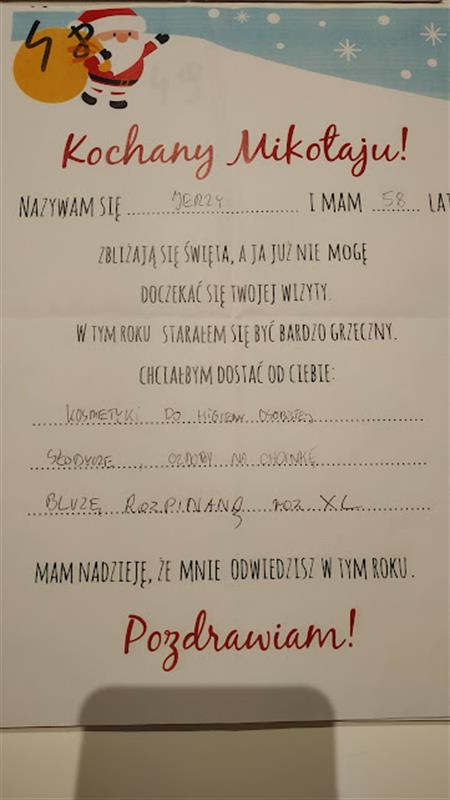 48
49
Kochany Mikołaju!
NAZYWAM SIĘ JERZY I MAM 58 LAT
ZBLIŻAJĄ SIĘ ŚWIĘTA, A JA JUŻ NIE MOGĘ
DOCZEKAĆ SIĘ TWOJEJ WIZYTY.
W TYM ROKU STARAŁEM SIĘ BYĆ BARDZO GRZECZNY.
CHCIAŁBYM DOSTAĆ OD CIEBIE:
KOSMETYKI DO HIGIENY OSOBISTEJ
SŁODYCZE, OZDOBY NA CHOINKĘ
BLUZĘ ROZPINANĄ ROZ XL
MAM NADZIEJĘ, ŻE MNIE ODWIEDZISZ W TYM ROKU.
Pozdrawiam!